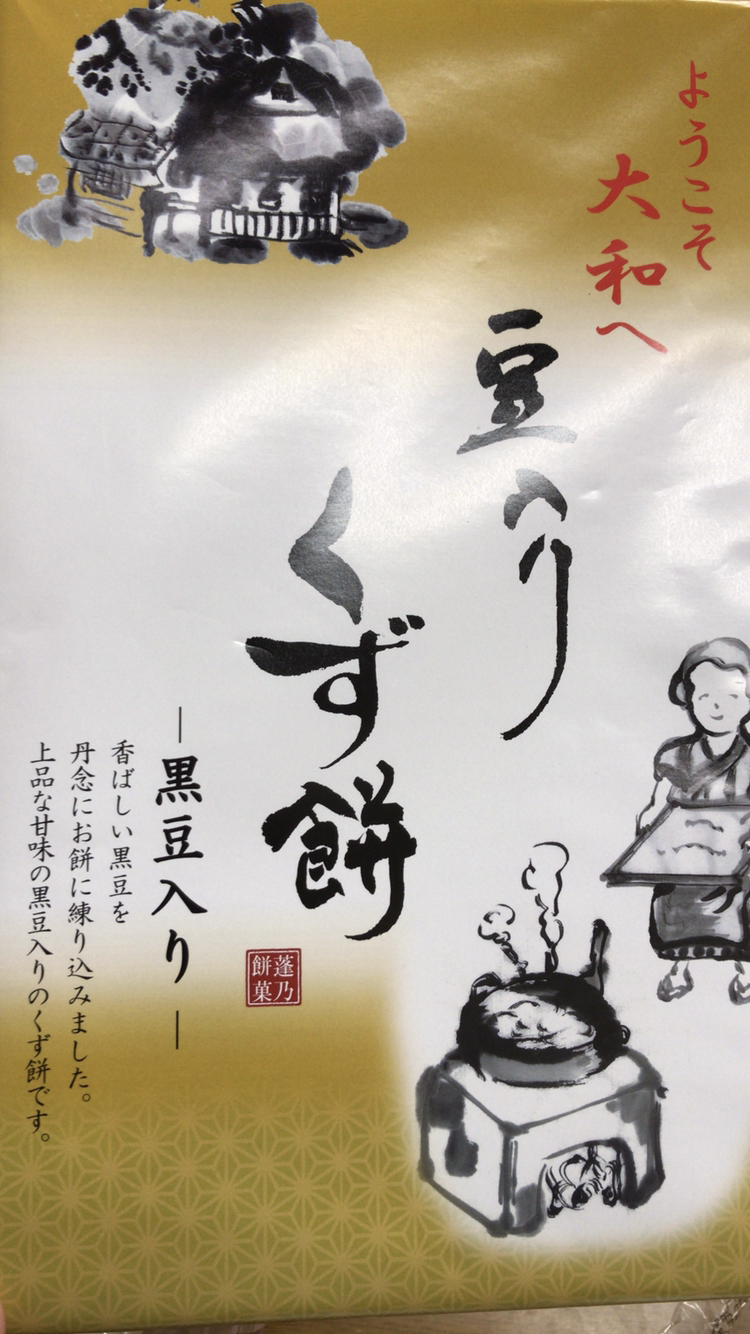 ようこそ
大和へ
豆入り
くず餅
蓬乃
餅菓
―黒豆入り―
香ばしい黒豆を
丹念にお餅に練り込みました。
上品な甘味の黒豆入りのくず餅です。